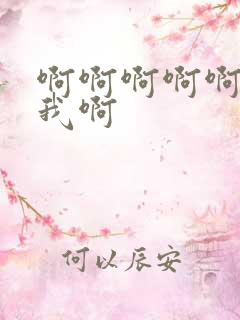 啊啊啊啊啊
我啊
何以辰安